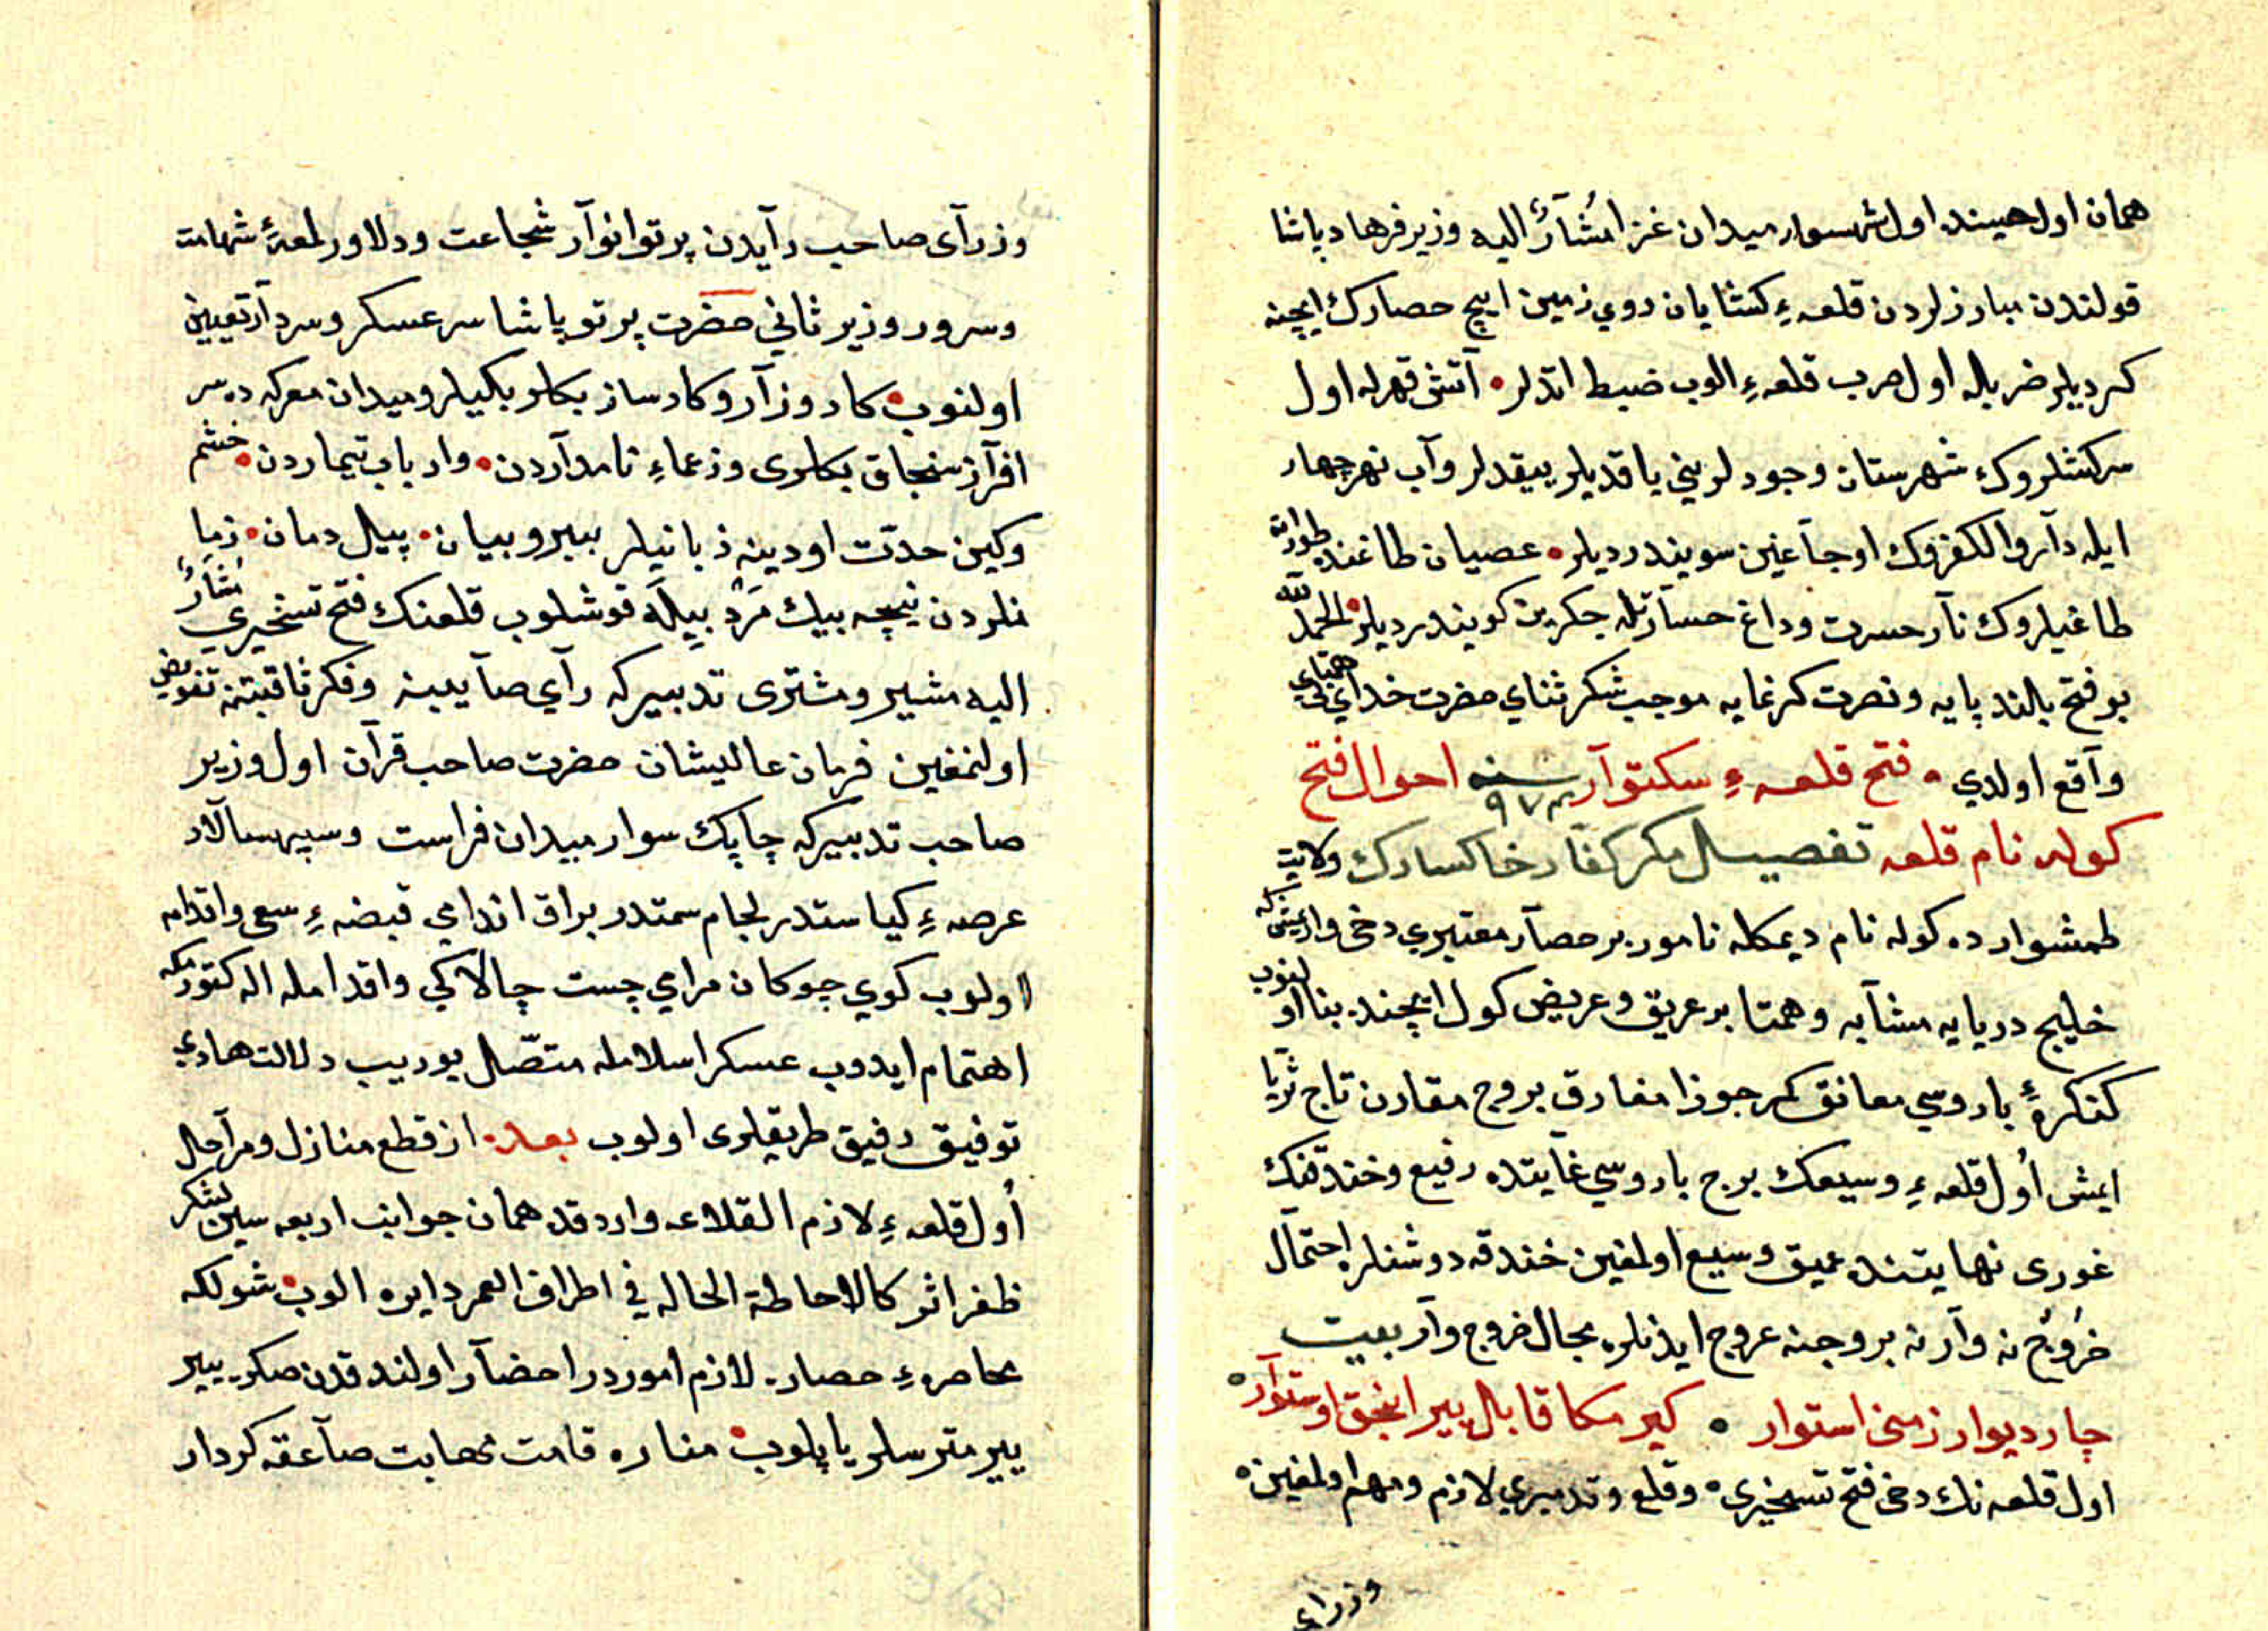 همان اول حینده اول شهسوار میدان غزا مُشَآرٌ الیه وزیر فرهاد پاشا
قولندن مبارزلردن قلعهٔ کشایان روي زمین ایچ حصارك ایچنه
کردیلر ضربله اول حرب قلعهٔ الوب ضبط اتدلر • آتش قهرله اول
سرکشلروك شهرستان وجودلرینی یاقدیلر ییقدلر وآب نهر چهار
ایله دآروالکفروك اوجاغین سویندردیلر • عصیان طاغنده طوران
طاغیلروك نآر حسرت وداغ حسآرتله جکرین کویندردیلر • الحمد لله
بو فتح بالند پایه و نصرت کرغایه موجب شکر ثنای حضرت خدای بی همتای
وآقع اولدي • فتح قلعهٔ سکتوآر سنه ۹۷۴ احوال فتح
کوله نام قلعه تفصیل مکر کفار خاکسارك ولایت
طمشوارده کوله نام دیمکله نامور بر حصآر معتبري دخی وارمیش که
خلیج دریایه مشآبه وهمتا بر عریق وعریض کول ایچنده بنا اولنوب
کنکرهٔ باروسي معانق کمر جوزا مفارق بروج مقارن تاج ثریا
ایمش أول قلعهٔ وسیعك برج باروسي غآیتده رفیع وخندقنك
غوری نهایتنده عمیق وسیع اولمغین خندقه دوشنلره احتمآل
خرُوُج نه وآر نه بروجنه عروج ایدنلره مجال خروج وآر بعیت
چار دیوار زمنی استوار • کیرمکا قابل بیر انجق اوستوآر •
اول قلعه نك دخی فتح تسخیري • وقلع وتدمیري لازم ومهم اولمغین •
وزرای
وزرآی صاحب رآیدن پرتو انوآر شجاعت ودلاور لمعهٔ شهامت
وسرور وزیر ثاني حضرت پرتو پاشا سرعسکر وسردآر تعیین
اولنوب • کار وزآر وکارساز بکلر بکیلر ومیدان معرکه ده سر
افرآز سنجاق بکلری وزعماءِ نامدآردن • وارباب تیماردن • خشم
وکین حدّت اودینه زبانیلر ببیر و بیان • پیل دمان • زما
نلردن نیچه بیك مَرْد بیلَه قوشلوب قلعنك فتح تسخیري مُشَآرٌ
الیه مشیر ومشتری تدبیرکه رآي صآیبنه وفکر ثاقبتنه تفویض
اولنمغین فرمان عالیشان حضرت صاحب قرآن اول وزیر
صاحب تدبیرکه چاپك سوار میدان فراست وسپهسالار
عرصهٔ کیاستدر لجام سمتدر براق اندامي قبضهٔ سعی واقدامه
اولوب کوي جوکان مرامي جست چالاکي واقدامله اله کتورمکه
اهتمام ایدوب عسکر اسلامله متّصل یوریب دلالت هادي
توفیق رفیق طریقلری اولوب بعده از قطع منازل ومرآحل
أول قلعهٔ لازم القلاعه واردقده همان جوانب اربعه سین لشکر
ظفر اثر کالاحاطة الحاله في اطراف العمر دایره الوب • شولکه
محاصرهٔ حصاره لازم اموردر احضآر اولندقدن صکره ییر
ییر مترسلر یاپلوب • مناره قامت مهابت صآعقه کردار